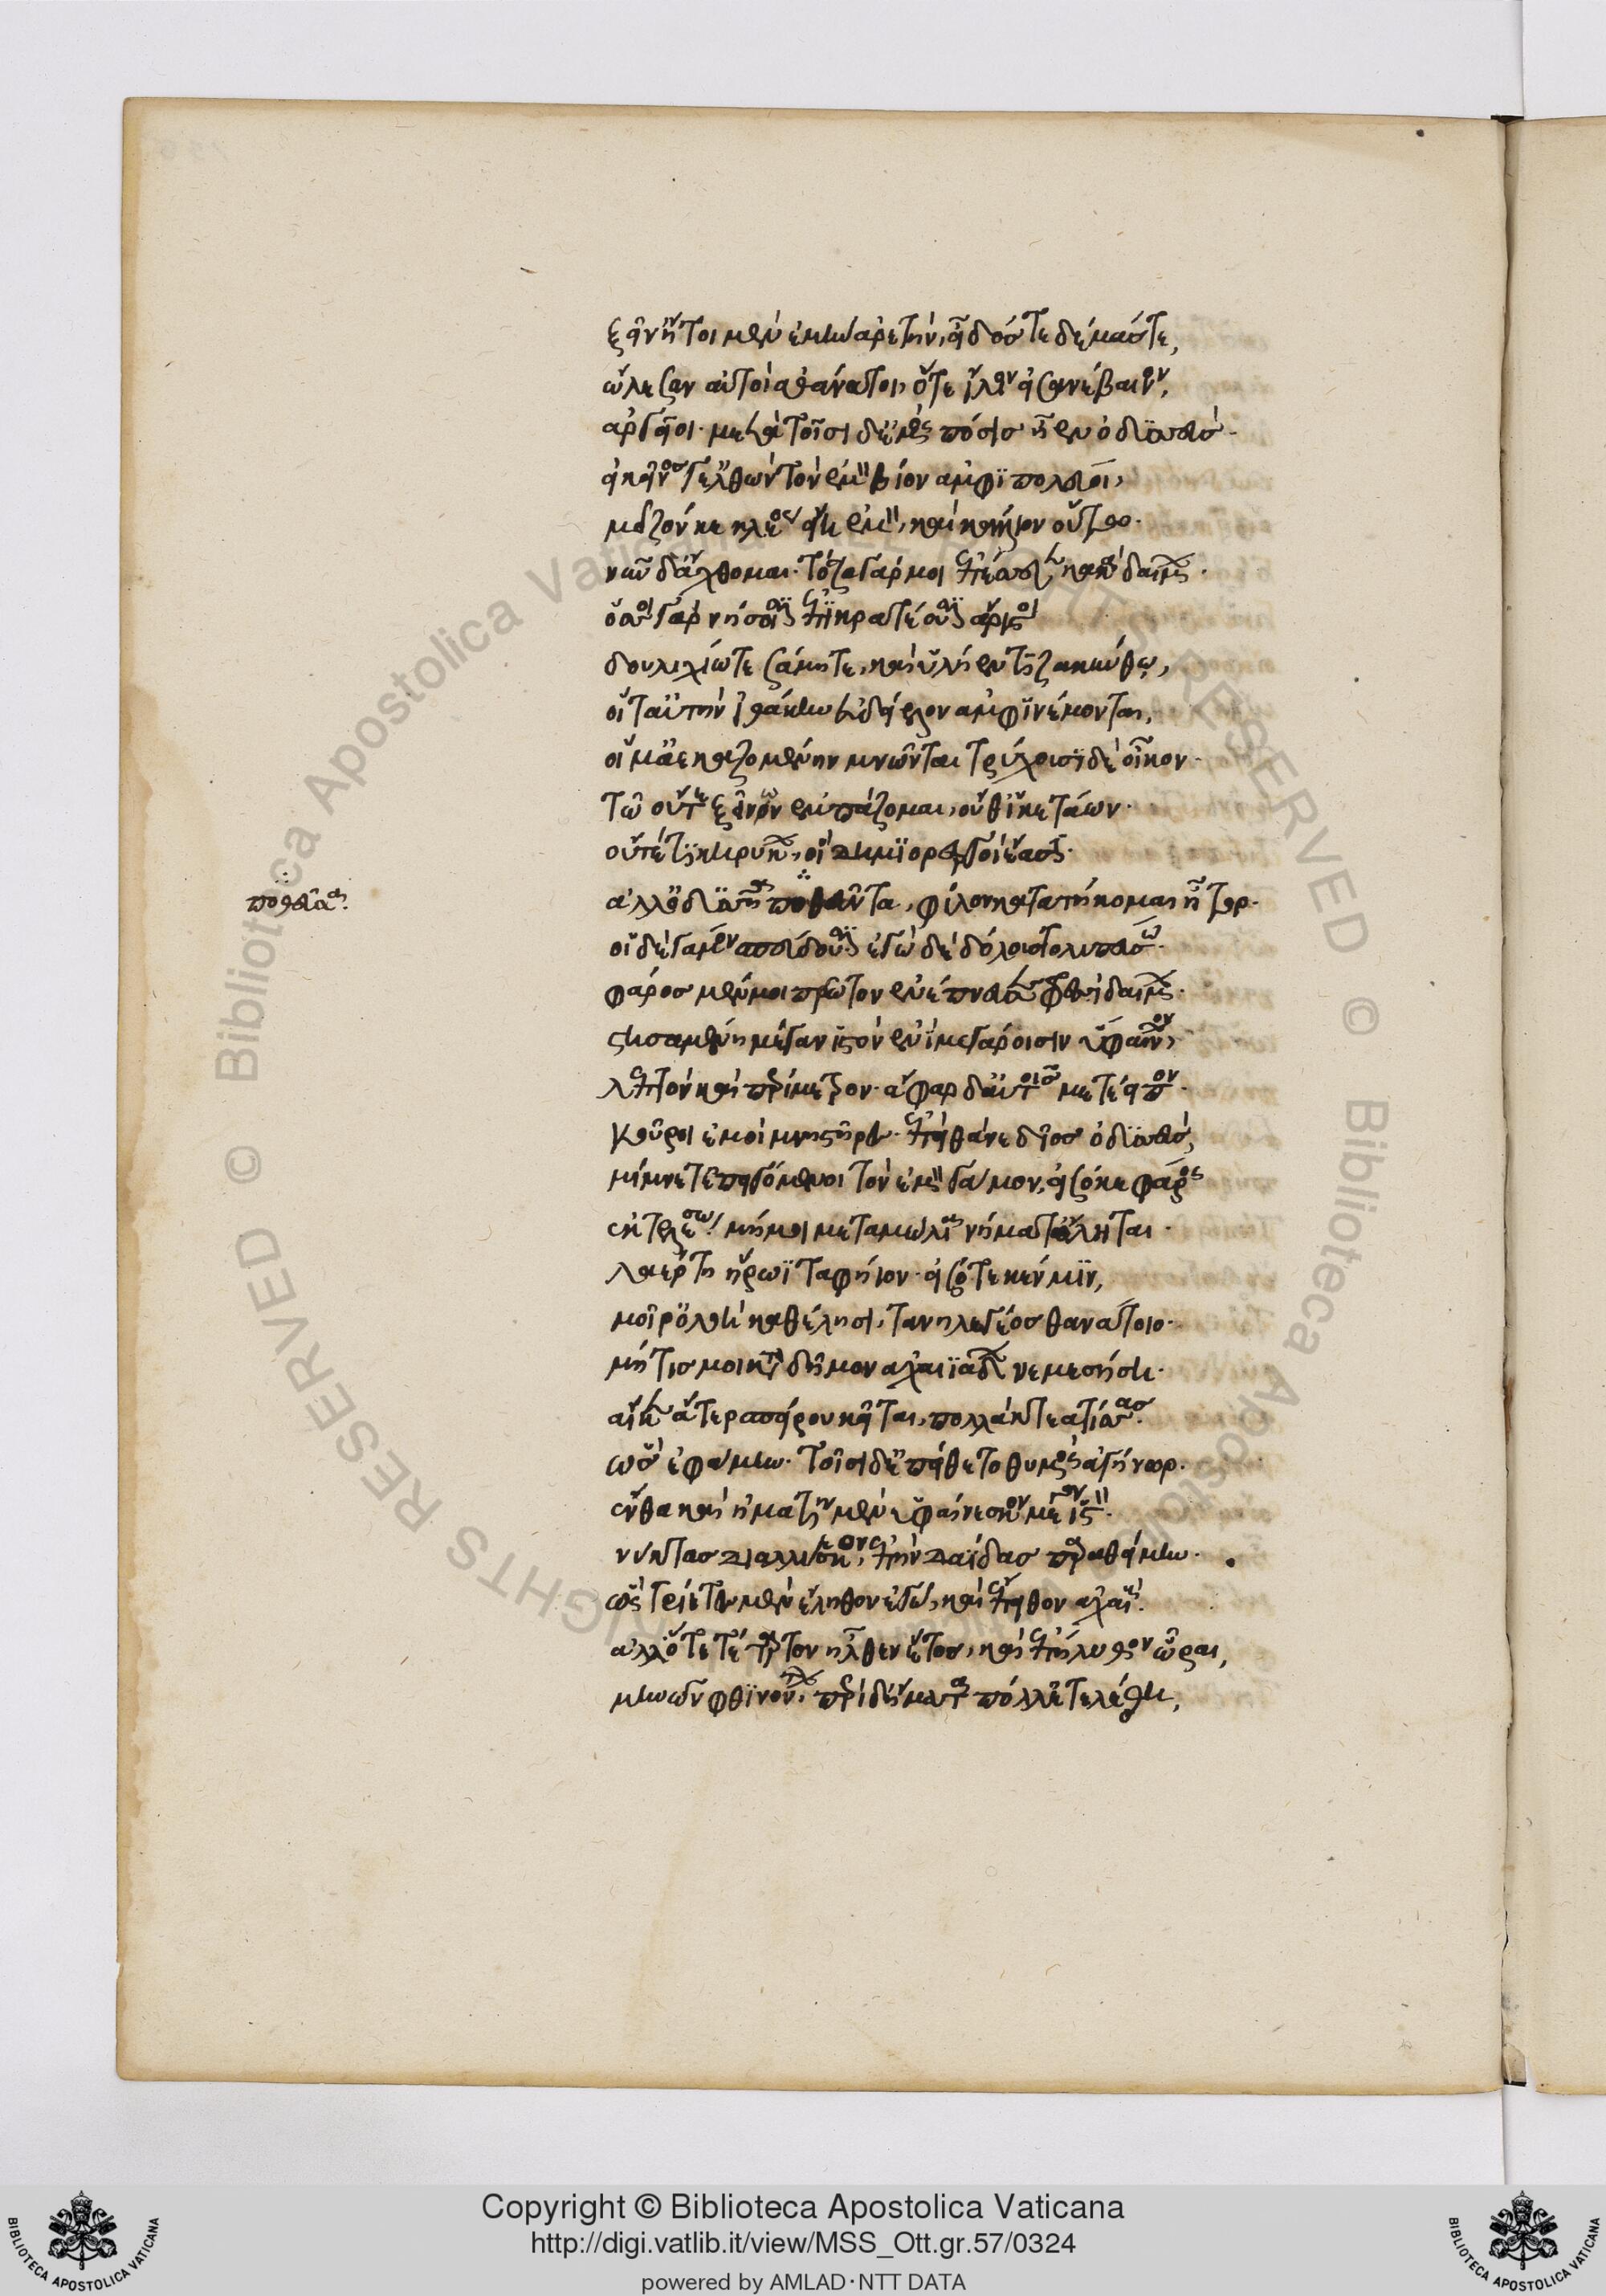 ξεῖν' ἤτοι μὲν ἐμὴν ἀρετὴν, εἶδός τε δέμας τε,
ὤλεσαν ἀθάνατοι, ὅτε ἴλιον εἰσανέβαινον,
ἀργεῖοι· μετὰ τοῖσι δ' ἐμὸς πόσις ἦεν ὀδυσσεύς·
εἰ κεῖνός γ' ἐλθὼν τὸν ἐμὸν βίον ἀμφιπολεύοι,
μεῖζόν κε κλέος εἴη ἐμὸν, καὶ κάλλιον οὕτω·
νῦν δ' ἄχθομαι· τόσα γάρ μοι ἐπέσσευεν κακὰ δαίμων·
ὅσσοι γὰρ νήσοισιν ἐπικρατέουσιν ἄριστοι
δουλιχίω τε σάμη τε, καὶ ὑλήεντι ζακύνθω,
οἵ τ' αὐτὴν ἰθάκην εὐδείελον ἀμφινέμονται,
οἵ μ' ἀεκαζομένην μνῶνται, τρύχουσι δὲ οἶκον·
τῶ οὔτε ξείνων ἐμπάζομαι, οὔθ' ἱκετάων·
οὔτέ τι κηρύκων, οἳ δημιοεργοὶ ἔασιν·
ἀλλ' ὀδυσσῆα ποθεῦντα, φίλον κατατήκομαι ἦτορ·
ποθεῦσα
οἱ δὲ γάμον σπεύδουσιν ἐγὼ δὲ δόλους τολυπεύω·
φάρος μέν μοι πρῶτον ἐνέπνευσε φρεσὶ δαίμων·
στησαμένη μέγαν ἱστὸν ἐνὶ μεγάροισιν ὕφαινον,
λεπτὸν καὶ περίμετρον· ἄφαρ δ' αὐτοῖς μετέειπον·
κοῦροι ἐμοὶ μνηστῆρες· ἐπεὶ θάνε δῖος ὀδυσσεύς,
μίμνετ' ἐπειγόμενοι τὸν ἐμὸν γάμον, εἰσόκε φάρος
ἐκτελέσω. μή μοι μεταμώλια νήματ' ὄληται·
λαέρτη ἥρωϊ ταφήιον· εἰς ὅτε κέν μιν,
μοῖρ' ὀλοὴ καθέλησι, τανηλεγέος θανάτοιο·
μή τίς μοι κατὰ δῆμον ἀχαιϊάδων νεμεσήση·
αἴ κεν ἄτερ σπείρου κεῖται, πολλὰ κτεατίσσας.
ὣς ἐφάμην· τοῖσι δ' ἐπείθετο θυμὸς ἀγήνωρ·
ἔνθα καὶ ἠματίη μὲν ὑφαίνεσκον μέγαν ἱστὸν·
νύκτας δ' ἀλλύεσκον, ἐπὴν δαΐδας παραθείμην·
ὣς τρίετες μὲν ἔληθον ἐγώ, καὶ ἔπειθον ἀχαιούς.
ἀλλ' ὅτε τέτρατον ἦλθεν ἔτος, καὶ ἐπήλυθον ὧραι,
μηνῶν φθινόντων, περὶ δ' ἤματα πόλλ' ἐτελέσθη,
Copyright © Biblioteca Apostolica Vaticana
http://digi.vatlib.it/view/MSS_Ott.gr.57/0324
powered by AMLAD·NTT DATA